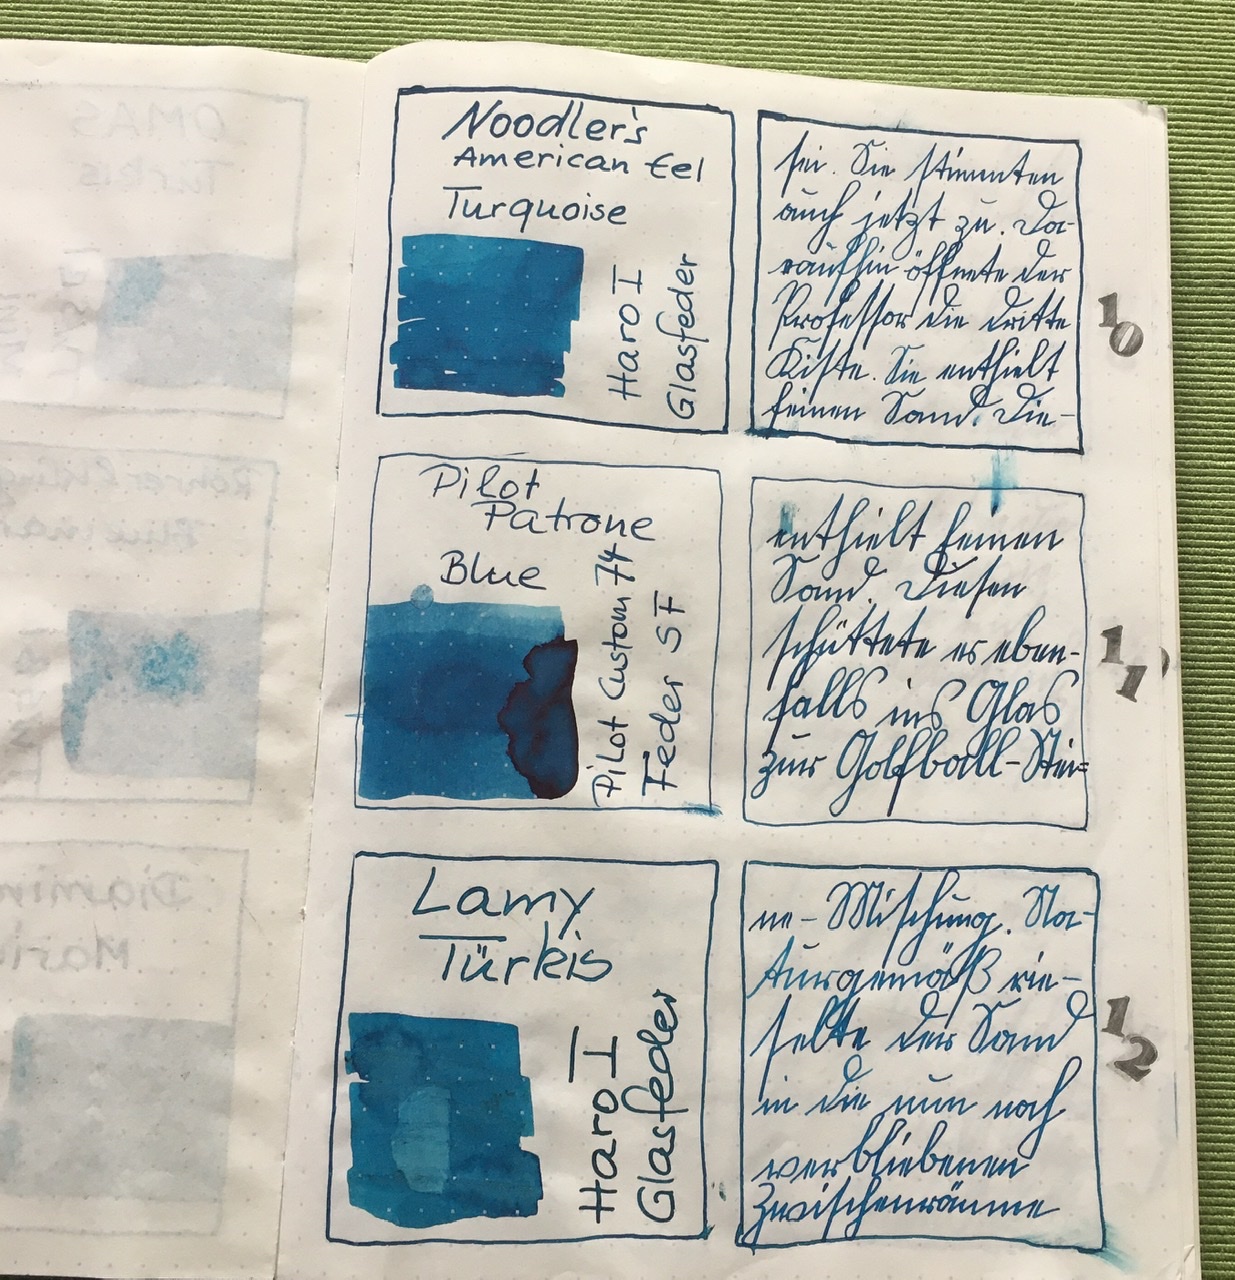 Noodler's
American Eel
Turquoise
Haro I
Glasfeder
sei. Sie stimmten
auch jetzt zu. Da-
raufhin öffnete der
Professor die dritte
Kiste. Sie enthielt
feinen Sand. Die-
10
Pilot
Patrone
Blue
Pilot Custom 74
Feder SF
enthielt feinen
Sand. Diesen
schüttete er eben-
falls ins Glas
zur Golfball-Stei=
11
Lamy
Türkis
Haro I
Glasfeder
ne-Mischung. Na-
turgemäß rie-
selte der Sand
in die nun noch
verbliebenen
Zwischenräume
12
OMAS
Türkis
Diamin